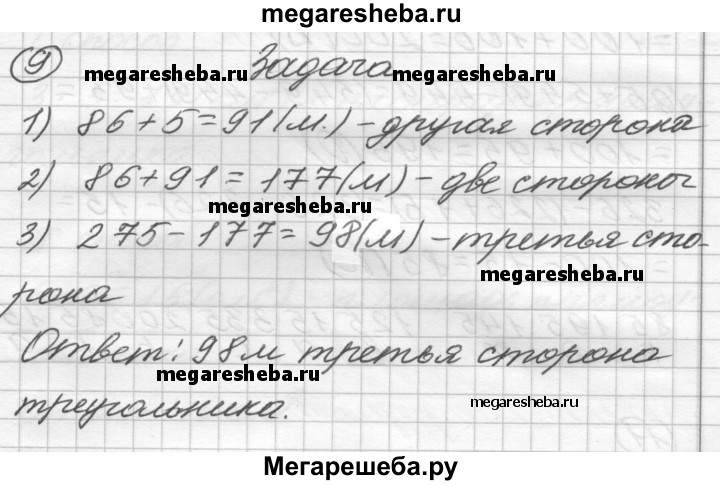 megaresheba.ru
9 Задача
megaresheba.ru megaresheba.ru
1) 86+5=91(м.) – другая сторона
2) 86+91=177(м) – две стороны
megaresheba.ru
3) 275-177=98(м) – третья сто-
megaresheba.ru
рона
Ответ: 98м третья сторона
megaresheba.ru
треугольника.
megaresheba.ru
Мегарешеба.ру